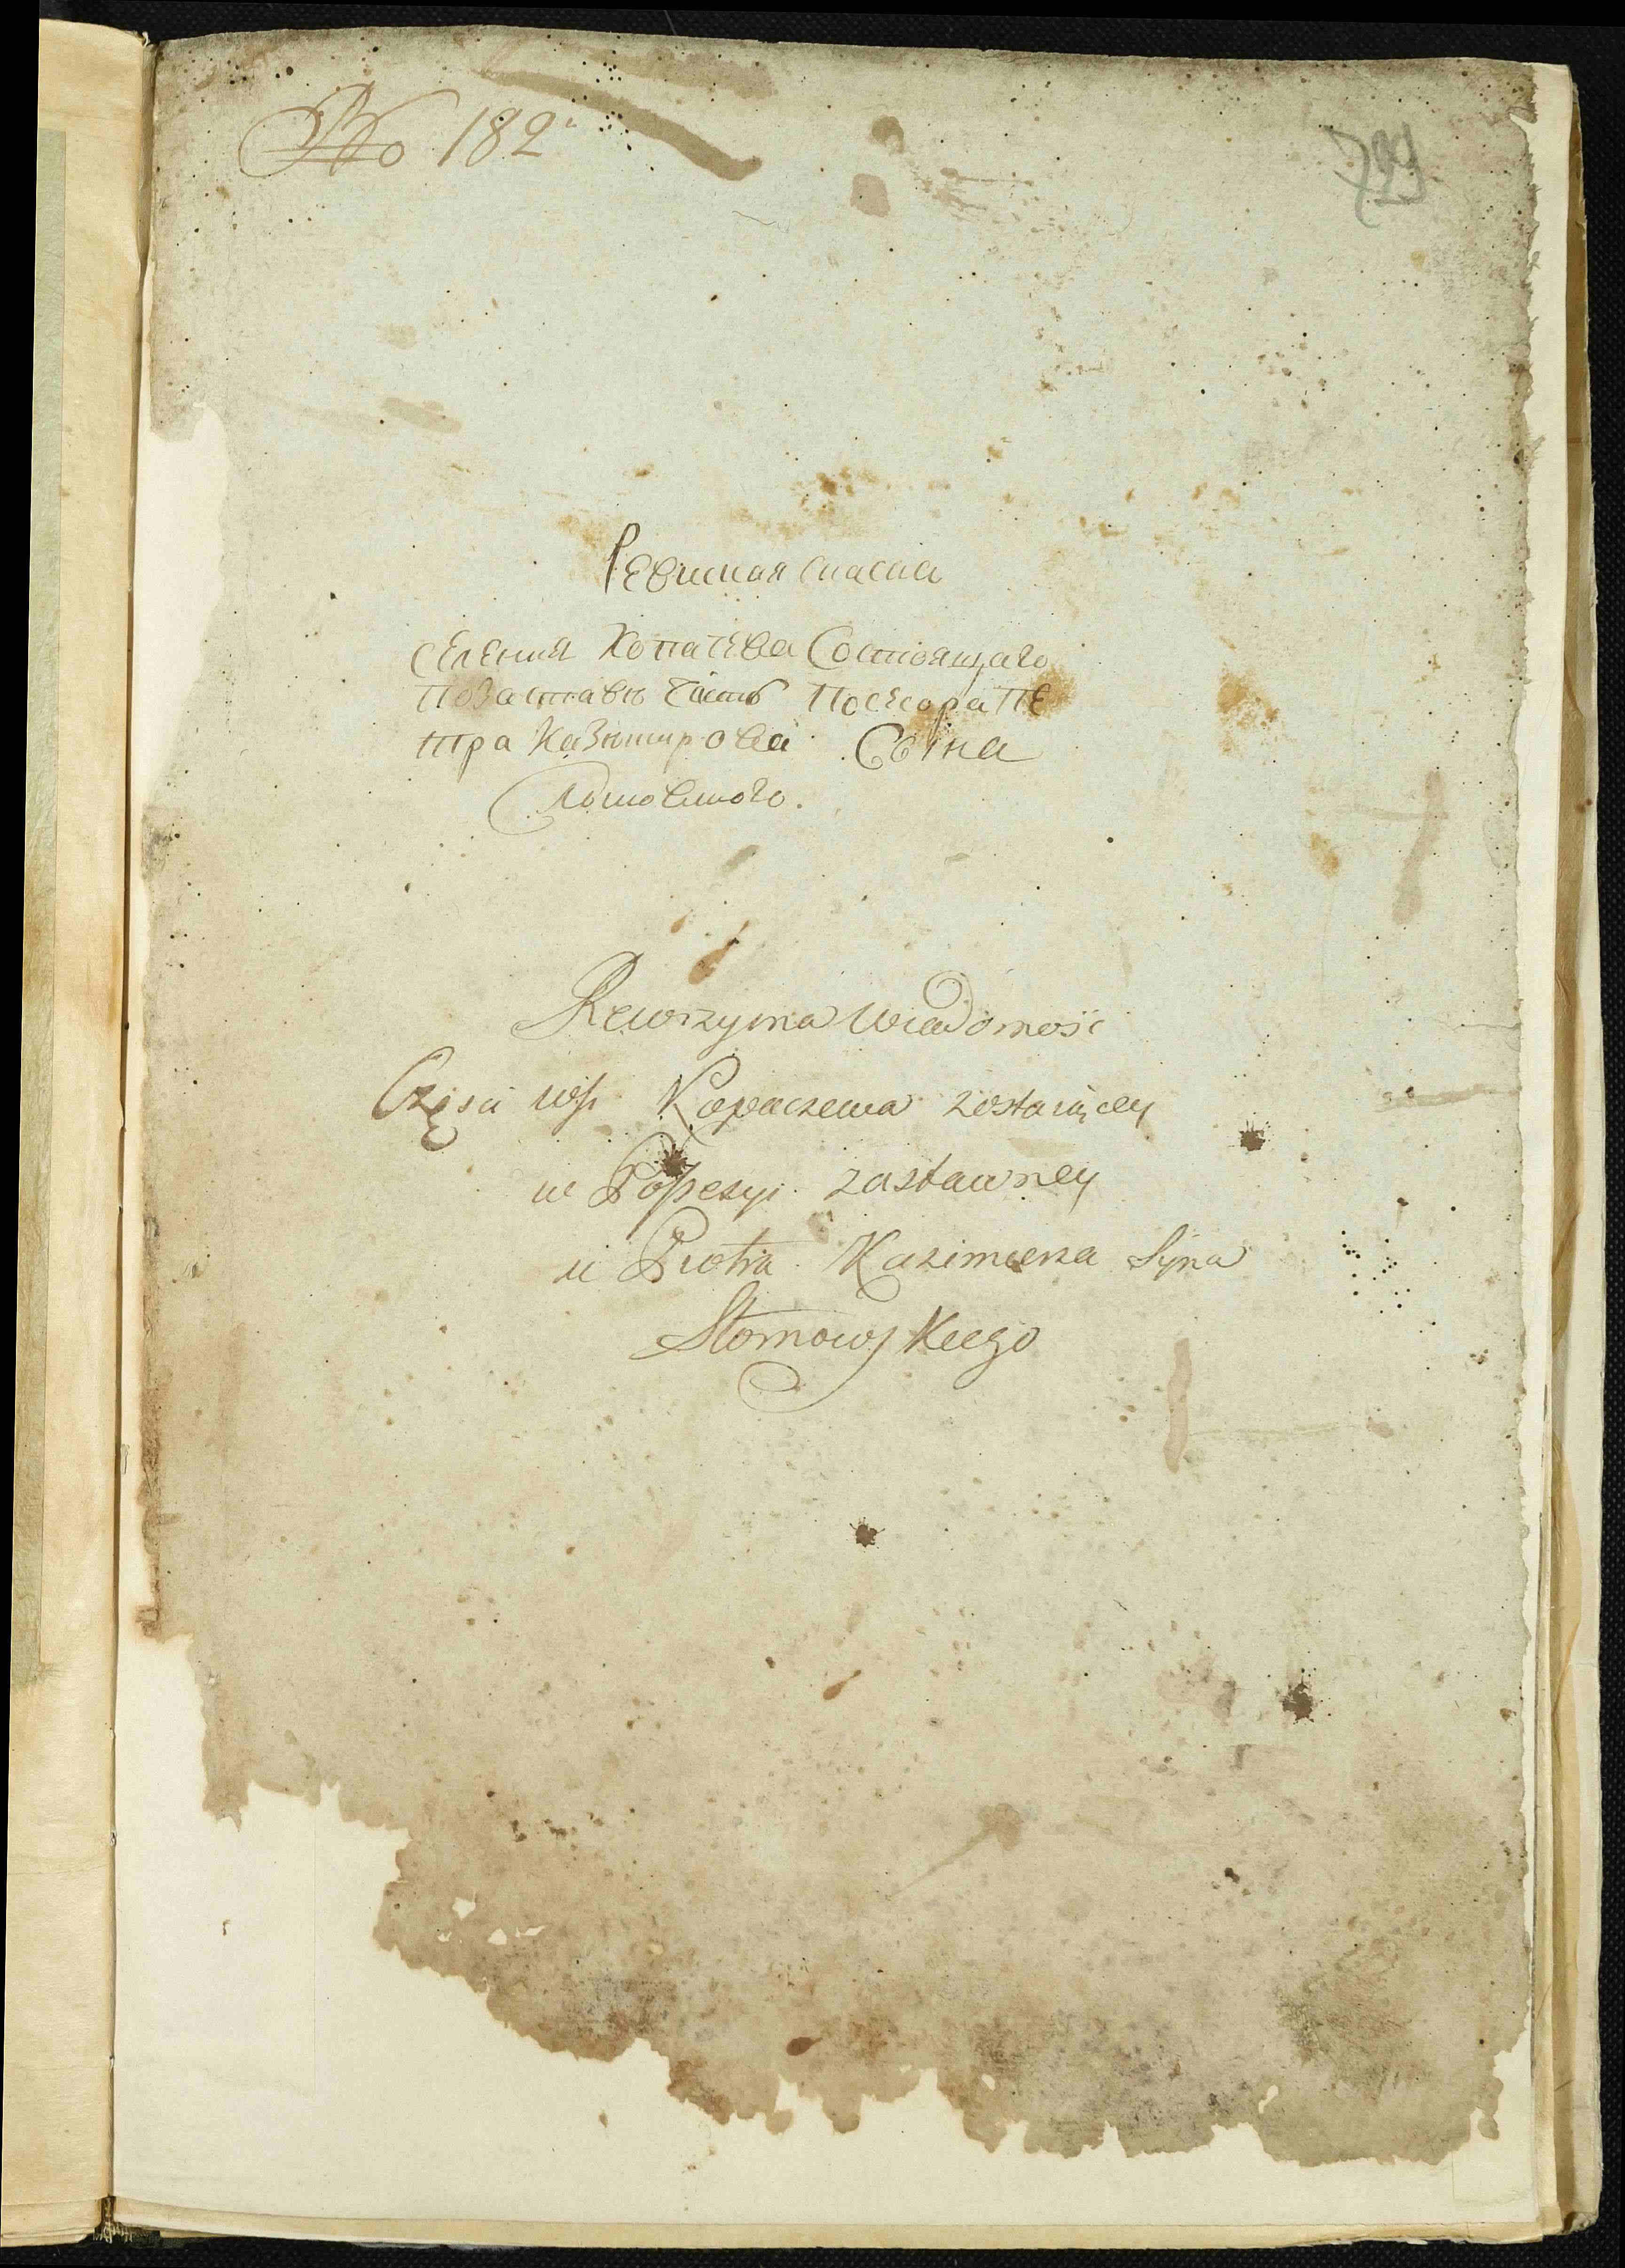 No 182
799
Ревиская скаска
селения Копачева Состоящаго
позаставъ часть Посесора Пе
тра Казимирова Сына
Rewizyina Wiadomość
Części wsi Kopaczewa zostaiącey
w Possesyi zastawney
u Piotra Kazimierza Syna
Słomowskiego